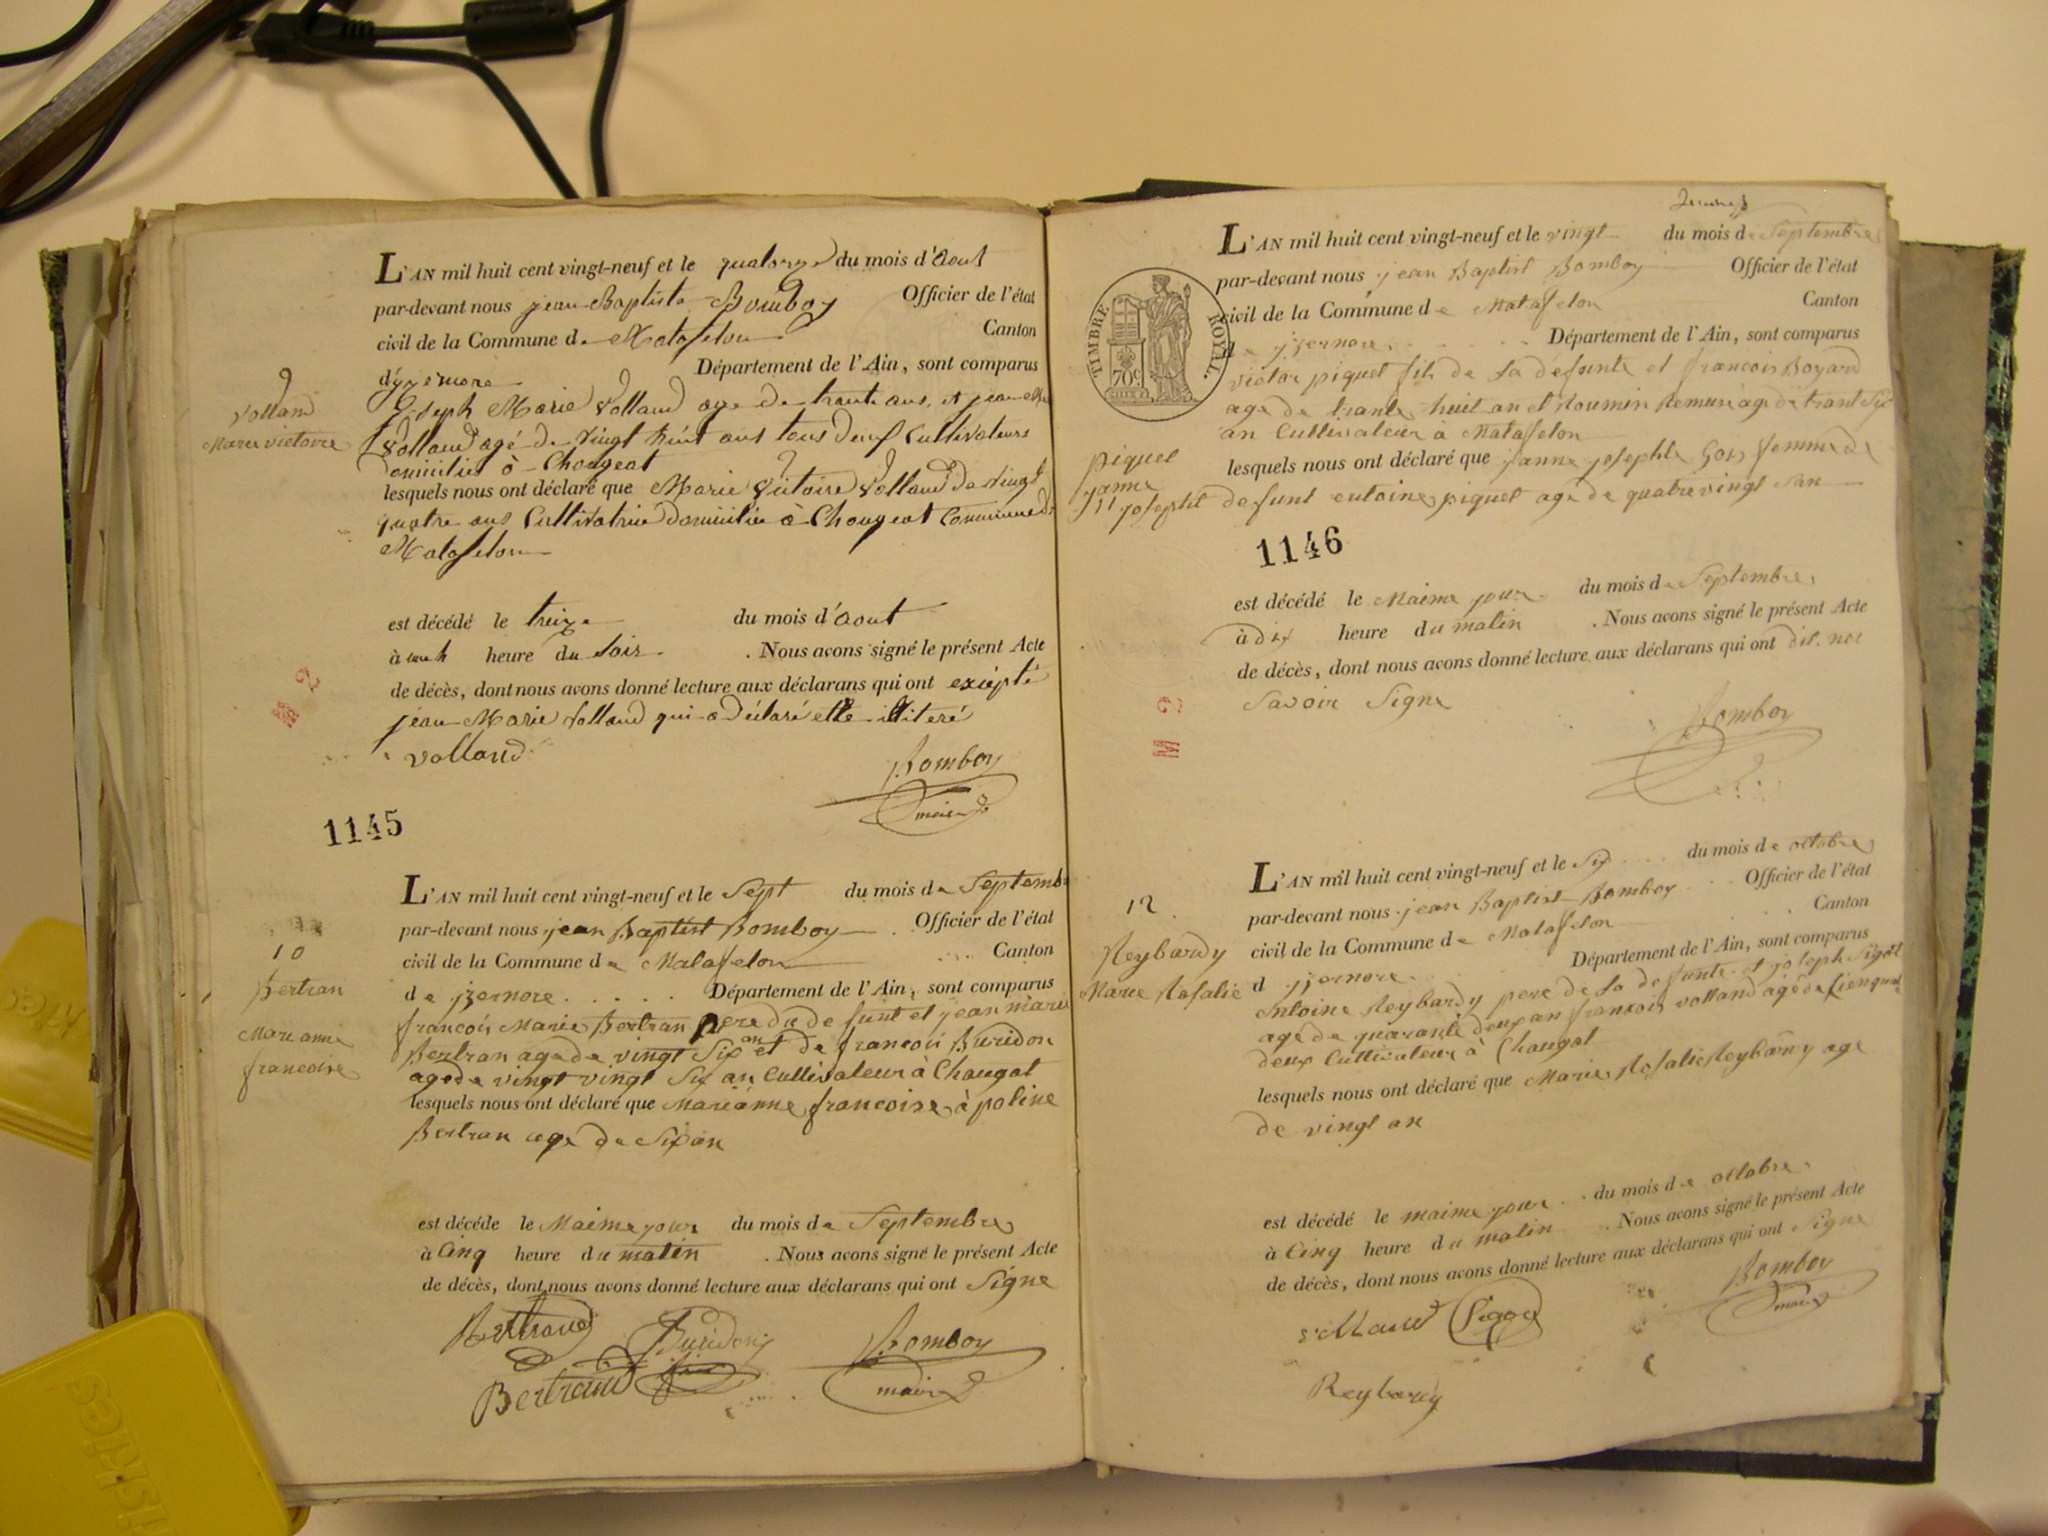 L'AN mil huit cent vingt-neuf et le quatorze du mois d'Aout
par-devant nous jean Baptiste Bomboy Officier de l'état
civil de la Commune de Matafelon Canton
d'yzernore Département de l'Ain, sont comparus
joseph Marie Volland age de trante ans, et jean Marie
Volland agé de vingt huit ans tous deux Cultivateurs
domiciliés à Chougeat
lesquels nous ont déclaré que Marie Victoire Volland de vingt
quatre ans Cultivatrice domiciliée à Chougeat Commune de
Matafelon
volland
Marie victoire
est décédé le treize du mois d'Aout
à heure du soir. Nous avons signé le présent Acte
de décès, dont nous avons donné lecture aux déclarans qui ont excepté
jean Marie Volland qui a déclaré etre illiteré
volland
Bomboy
maire
1145
L'AN mil huit cent vingt-neuf et le Sept du mois de Septembre
par-devant nous jean Baptist Bomboy Officier de l'état
civil de la Commune de Matafelon Canton
de jzernore Département de l'Ain, sont comparus
francois Marie Bertran pere du defunt et jean marie
Bertran age de vingt Six an et de francois Buridon
age de vingt vingt Six an Cultivateur à Chaugat
lesquels nous ont déclaré que Marianne francoise à poline
Bertran agé de Six an
10
Bertran
Marianne
francoise
est décéde le Maime jour du mois de Septembre
à Cinq heure du matin. Nous avons signé le présent Acte
de décès, dont nous avons donné lecture aux déclarans qui ont Signe
Bertrand Buridon Bomboy
Bertrand maire
L'AN mil huit cent vingt-neuf et le vingt du mois de Septembre
par-devant nous jean Baptist Bomboy Officier de l'état
civil de la Commune de Matafelon Canton
d jzernore Département de l'Ain, sont comparus
TIMBRE ROYAL.
70c
victor piquet fils de la defunte et francois Boyard
age de trante huit an et age de trant Six
an Cultivateur à Matafelon
lesquels nous ont déclaré que janne josephte femme de
defunt antoine piquet age de quatrevingt an
piquet
janne
josepht
1146
est décédé le Maime jour du mois de Septembre
à dix heure du matin. Nous avons signé le présent Acte
de décès, dont nous avons donné lecture aux déclarans qui ont dit. ne
Savoir Signe
Bomboy
L'AN mil huit cent vingt-neuf et le Six du mois de octobre
par-devant nous jean Baptist Bomboy Officier de l'état
civil de la Commune de Matafelon Canton
d jzernore Département de l'Ain, sont comparus
Antoine Reybardy pere de la defunte et joseph Sigot
age de quarante deux an francois volland agé de Cienquante
deux Cultivateur à Chaugat
lesquels nous ont déclaré que Marie Rosalie Reybardy age
de vingt an
12
Reybardy
Marie Rosalie
est décédé le maime jour du mois de octobre
à Cinq heure du matin. Nous avons signé le présent Acte
de décès, dont nous avons donné lecture aux déclarans qui ont Signe
volland Sigod Bomboy
maire
Reybardy